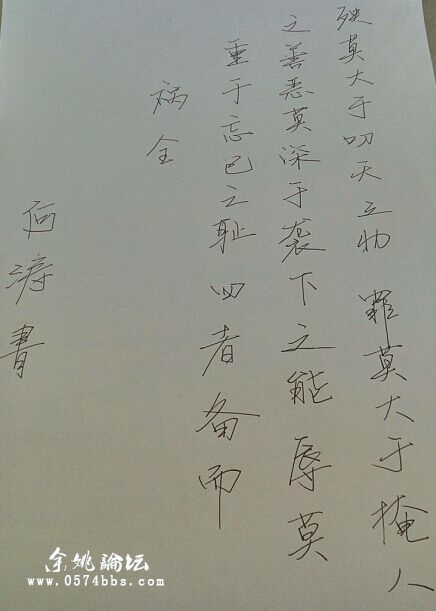 殃莫大于叨天之功 罪莫大于掩人
之善恶莫深于袭下之能 辱莫
重于忘己之耻 四者备而
祸全
何涛書
余姚論坛
www.0574bbs.com